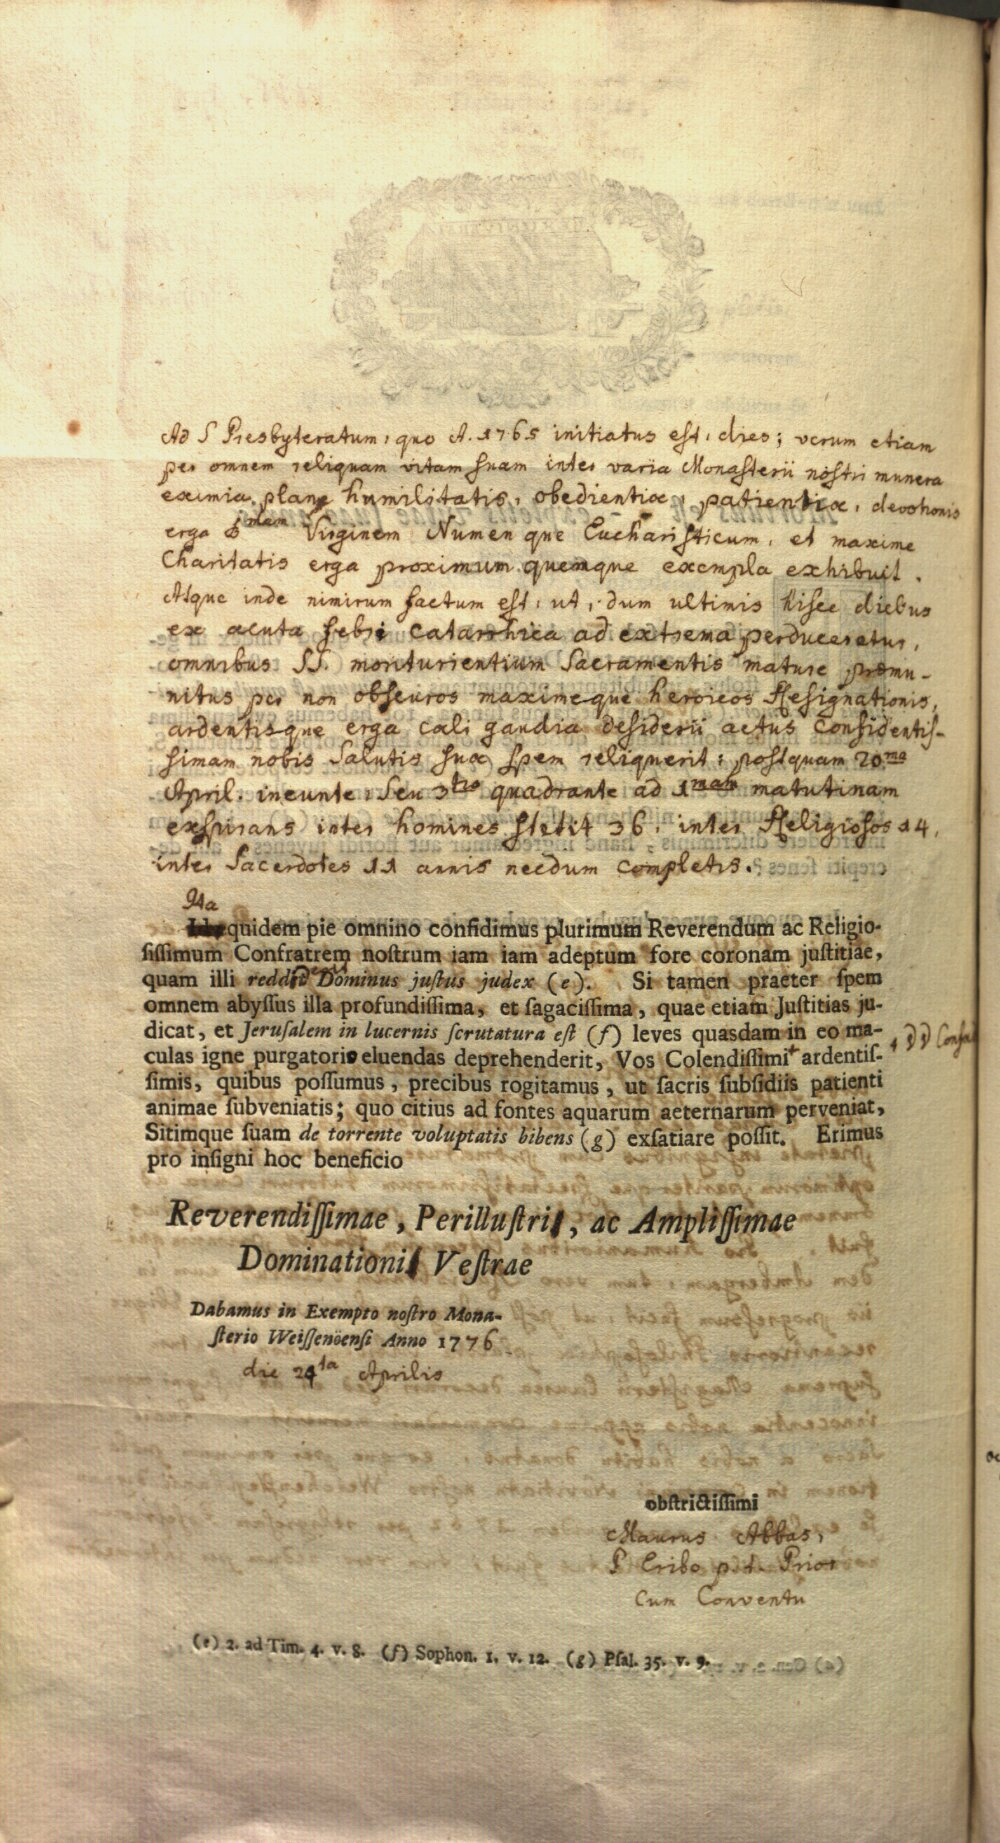 Ad S Presbyteratum, quo A. 1765 initiatus est, dies; verum etiam
per omnem reliquam vitam suam inter varia Monasterii nostri munera
eximia plane humilitatis, obedientiæ, patientiæ, devotionis
erga Virginem Numen que Eucharisticum, et maxime
Charitatis erga proximum quemque exempla exhibuit.
Atque inde nimirum factum est, ut, dum ultimis hisce diebus
ex acuta febri catarrhica ad extrema perduceretur,
omnibus SS. moriturientium Sacramentis mature præmu-
nitus per non obscuros maximeque heroicos Resignationis,
ardentisque erga cæli gaudia desiderii actus Confidentis-
simam nobis Salutis suæ spem reliquerit; postquam 20ma
April. ineunte, seu 3tio quadrante ad 1mam matutinam
exspirans inter homines stetit 36, inter Religiosos 14,
inter Sacerdotes 11 annis necdum completis.
Ita
quidem pie omnino confidimus plurimum Reverendum ac Religio-
sissimum Confratrem nostrum iam iam adeptum fore coronam justitiae,
quam illi Dominus justus judex (e). Si tamen praeter spem
omnem abyssus illa profundissima, et sagacissima, quae etiam Justitias ju-
dicat, et Jerusalem in lucernis scrutatura est (f) leves quasdam in eo ma-
culas igne purgatorio eluendas deprehenderit, Vos Colendissimi + ardentis-
+ DD
simis, quibus possumus, precibus rogitamus, ut sacris subsidiis patienti
animae subveniatis; quo citius ad fontes aquarum aeternarum perveniat,
Sitimque suam de torrente voluptatis bibens (g) exsatiare possit. Erimus
pro insigni hoc beneficio
Reverendissimae, Perillustri, ac Amplissimae
Dominationi Vestrae
Dabamus in Exempto nostro Mona-
sterio Weissenöensi Anno 1776
die 24ta Aprilis
obstrictissimi
Maurus Abbas,
P Eribo p. t. Prior
Cum Conventu
(e) 2. ad Tim. 4. v. 8. (f) Sophon. 1. v. 12. (g) Psal. 35. v. 9.